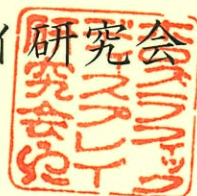 イ研究会
ホログラフィック
ディスプレイ
研究会印